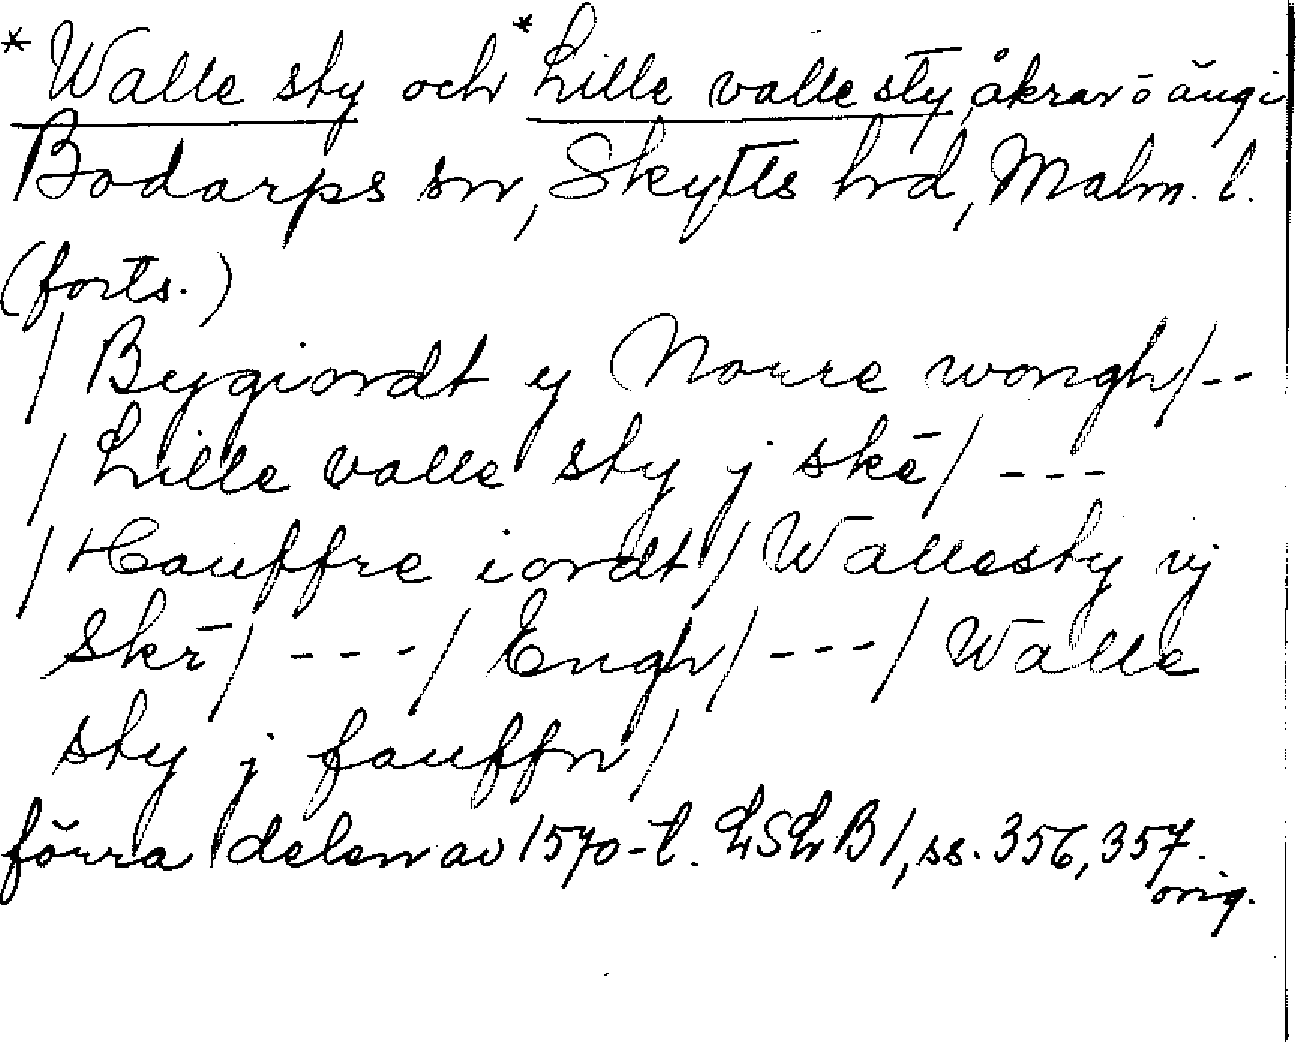 *Walle sty och *Lille valle sty, åkrar o äng i
Bodarps sn, Skytts hd, Malm. l.
(forts.)
/ Bygiordt y Noure wongh/--
/ Lille valle sty j skē/ ---
/ Hauffre iordt/ Wallesty vj
Skr̄/ ---/ Engh/ ---/ Walle
sty j fauffn/
förra delen av 1570-t. LSLB 1, ss. 356, 357.
orig.